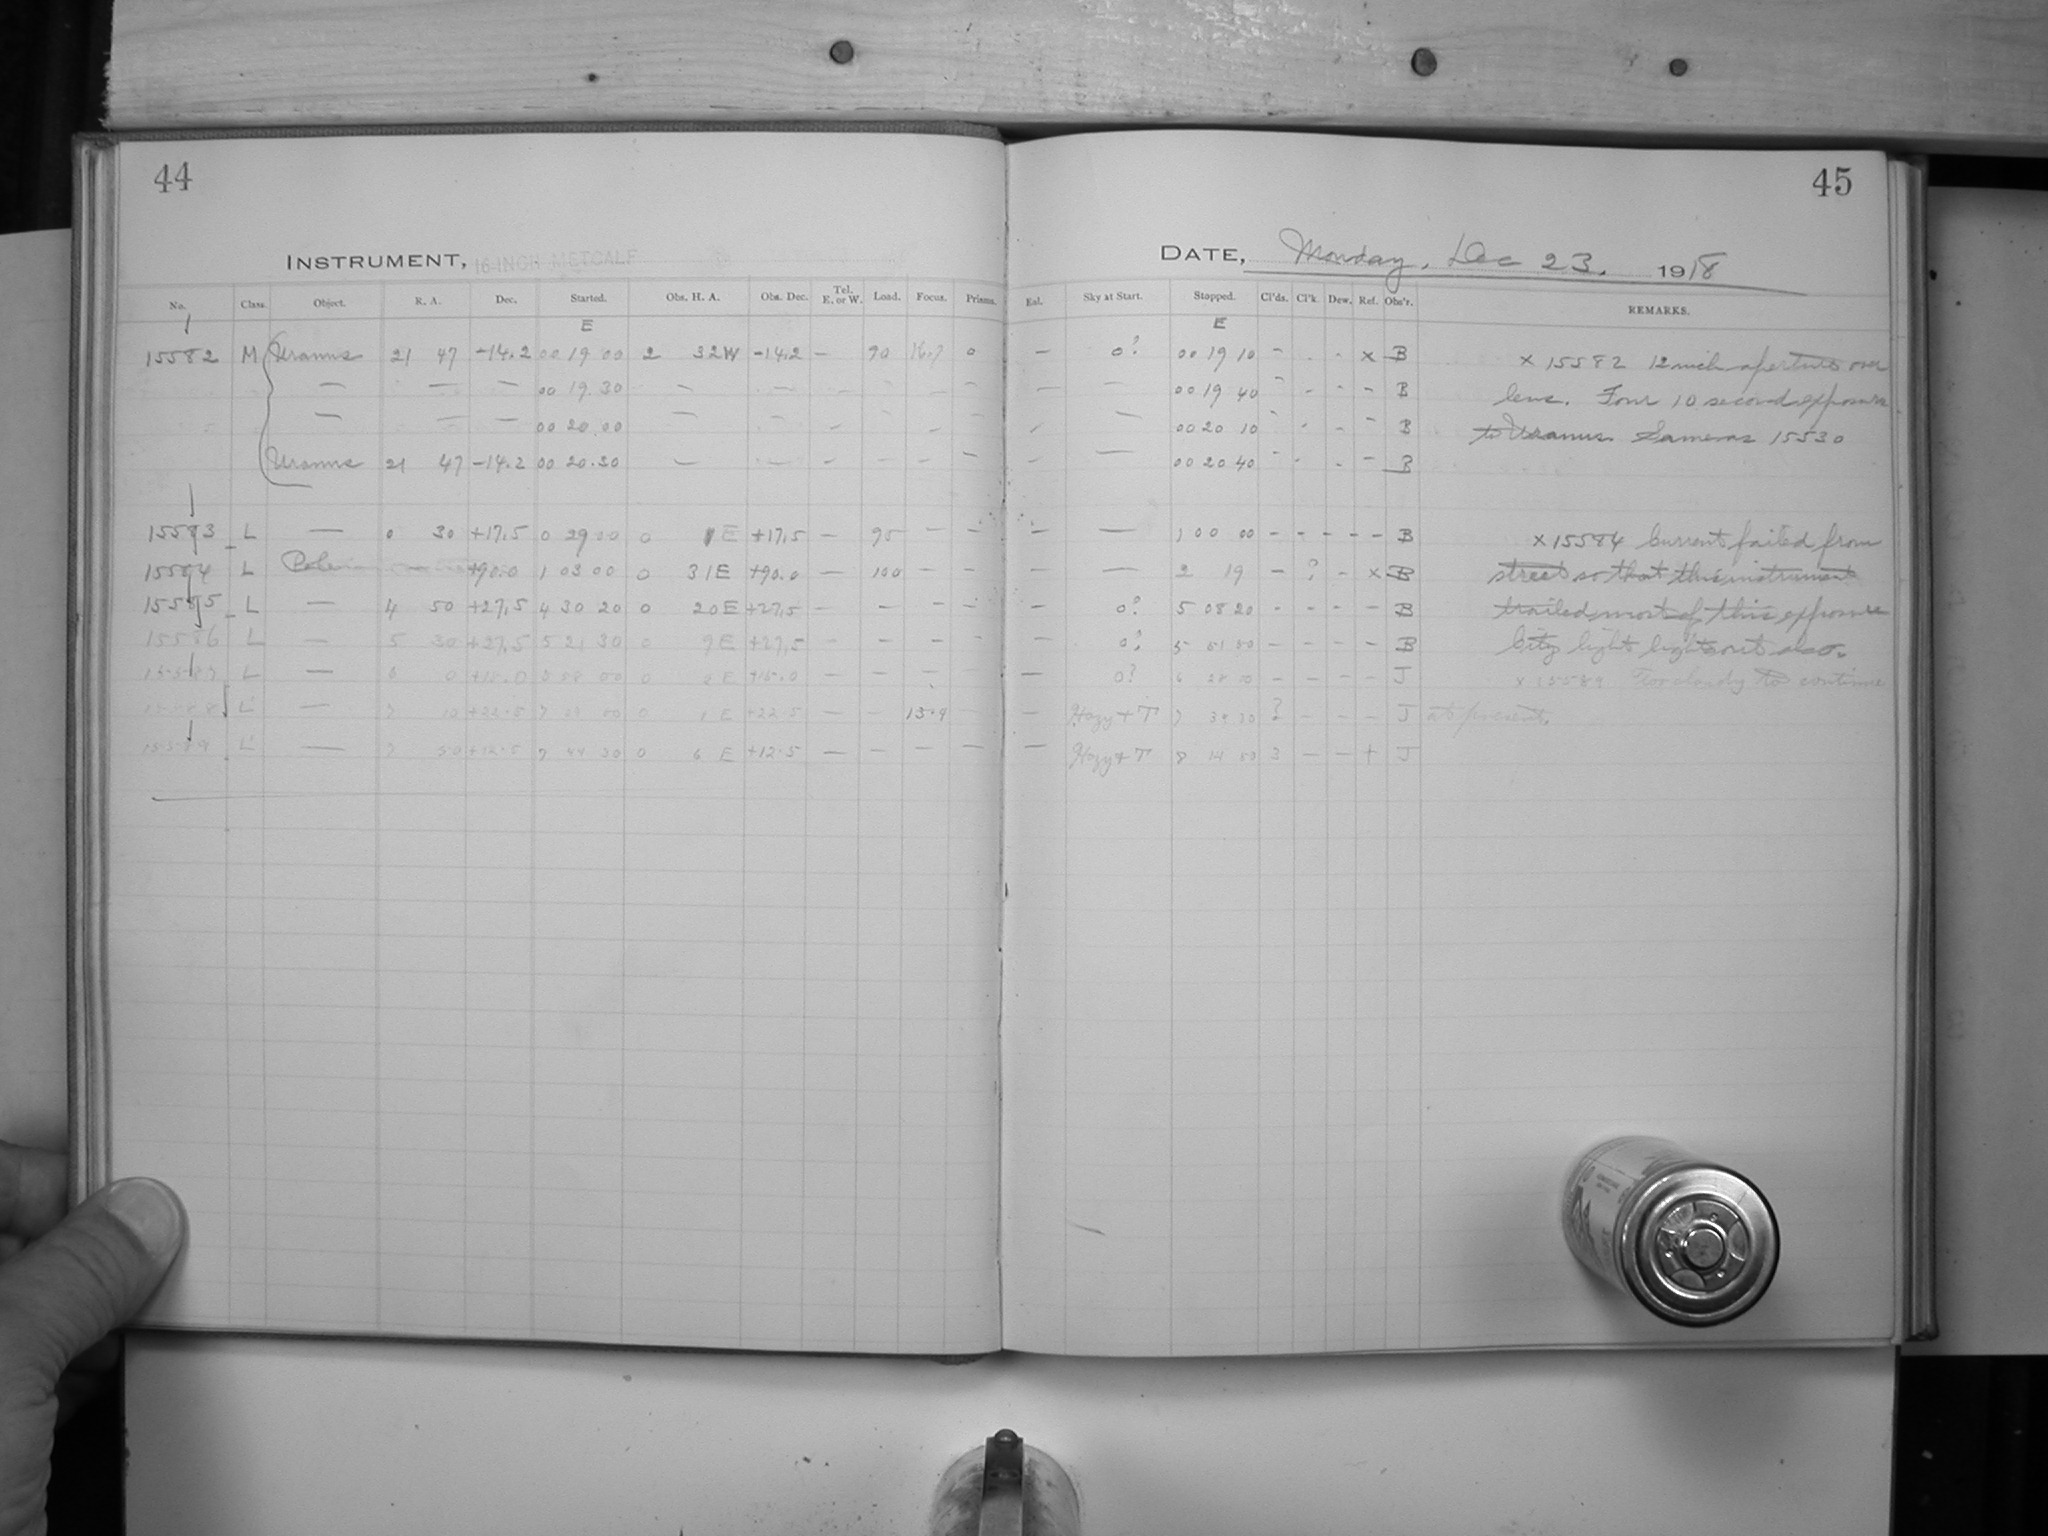 44
45
INSTRUMENT, 16-INCH METCALF
DATE, Monday, Dec 23, 1918
No. Class. Object. R. A. Dec. Started. Obs. H. A. Obs. Dec. Tel. E. or W. Load. Focus. Prisms. Eal. Sky at Start. Stopped. Cl'ds. Cl'k. Dew. Ref. Obs'r. REMARKS.
E E
15582 M Uranus 21 47 -14.2 00 19 00 2 32W -14.2 — 90 16.7 0 — 0? 00 19 10 - . . x B x 15582 12 inch aperture over
— — — 00 19.30 — — 00 19 40 B lens. Four 10 second exposures
— — — 00 20.00 — — 00 20 10 B to Uranus. Same as 15530
Uranus 21 47 -14.2 00 20.30 — — 00 20 40 B
15583 L — 0 30 +17.5 0 29 00 0 1 E +17.5 — 95 - - — — 1 00 00 - - - - B x 15584 Current failed from
15584 L +90.0 1 03 00 0 31E +90.0 — 100 - - — — 2 19 - ? - x B street so that this instrument
15585 L — 4 50 +27.5 4 30 20 0 20E +27.5 — — - - — 0? 5 08 20 - - - - B trailed most of this exposure
15586 L — 5 30 +27.5 5 21 30 0 9E +27.5 — — — — — 0? 5 51 50 - - - - B City light lights out also.
15587 L — 6 0 +15.0 0 E +15.0 — — — — — 0? 6 28 - - - - J x 15589 Too cloudy to continue
15588 L — 7 10 +22.5 7 0 1 E +22.5 — — 15.9 — Hazy + T 7 39 30 ? - - - J at present.
15589 L — 7 50 +12.5 7 44 30 0 6 E +12.5 — — — — — Hazy + T 8 14 50 3 — — + J